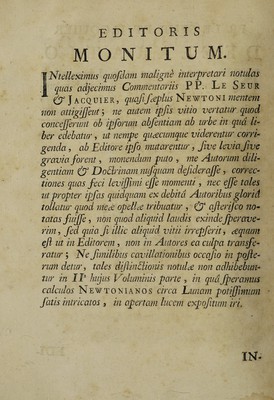 EDITORIS
MONITUM.
INtelleximus quosdam malignè interpretari notulas
quas adjecimus Commentariis PP. LE SEUR
& JACQUIER, quasi sæplus NEWTONI mentem
non attigissent; ne autem ipsis vitio vertatur quod
concesserunt ob ipsorum absentiam ab urbe in quâ li-
ber edebatur, ut nempe quæcumque viderentur corri-
genda, ab Editore ipso mutarentur, sive levia sive
gravia forent, monendum puto, me Autorum dili-
gentiam & Doctrinam nusquam desiderasse, correc-
tiones quas feci levissimi esse momenti, nec esse tales
ut propter ipsas quidquam ex debitâ Autoribus gloriâ
tollatur quod meæ opellæ tribuatur, & asterisco no-
tatas fuisse, non quod aliquid laudis exinde sperave-
rim, sed quia si illic aliquid vitii irrepserit, æquum
est ut in Editorem, non in Autores ea culpa transfe-
ratur; Ne similibus cavillationibus occasio in poste-
rum detur, tales distinctionis notulæ non adhibebun-
tur in IIᵃ hujus Voluminis parte, in quâ speramus
calculos NEWTONIANOS circa Lunam potissimum
satis intricatos, in apertam lucem expositum iri.
IN-